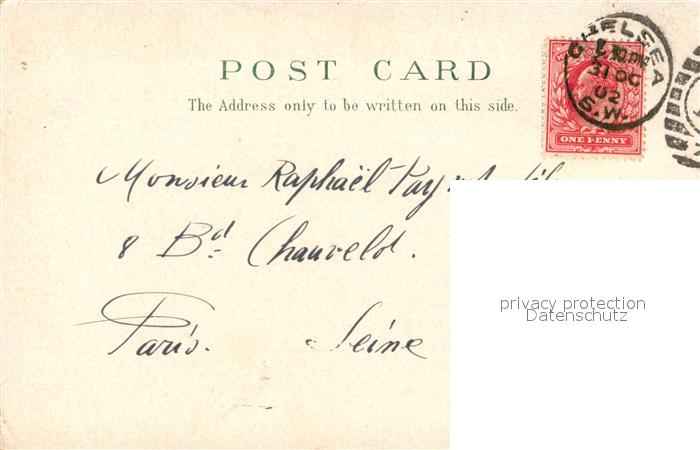 POST CARD
The Address only to be written on this side.
CHELSEA
31 OC
02
S.W.
ONE PENNY
Monsieur Raphaël
8 Bd Chauvelot.
Paris. Seine
privacy protection
Datenschutz